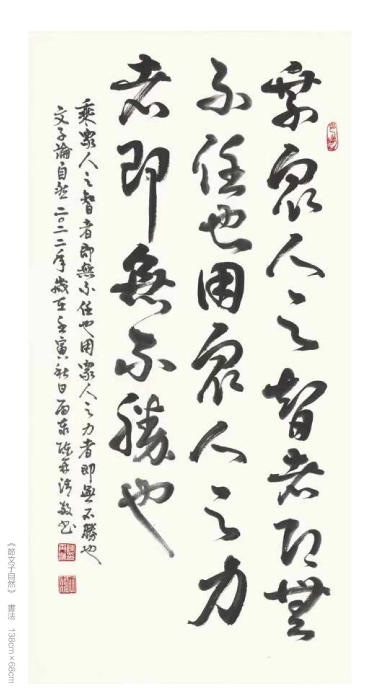 乘眾人之智者即無
不任也用眾人之力
者即無不勝也
乘眾人之智者即無不任也用眾人之力者即無不勝也
文子論自然二〇二二年歲在壬寅秋日
《節文子自然》 書法 138cm×68cm